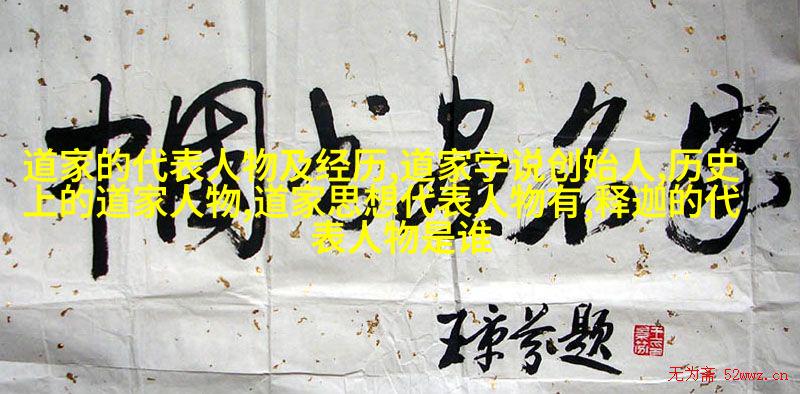 中國书名家
道家的代表人物及经历,道家学说创始人,历史
上的道家人物,道家思想代表人物有,释迦的代
表人物是谁
王芬题
无为斋 52wwz.cn